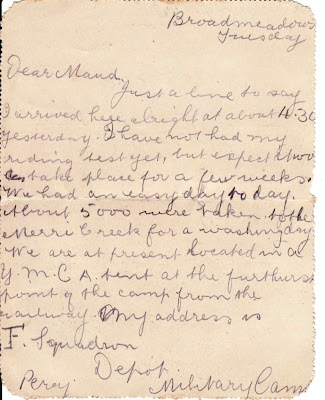 Broadmeadows
Tuesday
Dear Maud,
Just a line to say
I arrived here alright at about 4.30
yesterday. I have not had my
riding test yet, but expect it wo
take place for a few weeks.
We had an easy day to day.
About 5000 were taken to the
Merri Creek for a washing day
We are at present located in a
Y.M.C.A. tent at the furthurst
point of the camp from the
railway. My address is
F. Squadron
Depot.
Percy Military Camp